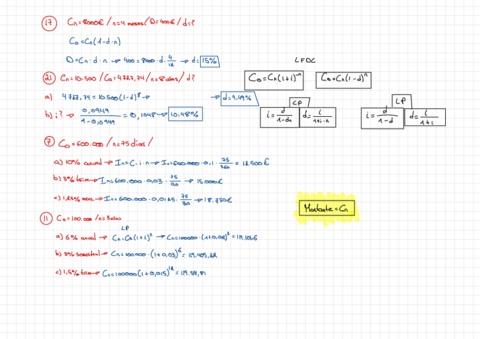 17 Cn=8000€ / n=4 meses / D=400€ / d=?
Co=Cn(1-d·n)
D=Cn·d·n → 400=8000·d·4/12 → d=15%
21 Cn=10.500 / Co=4727,74 / n=8años / d?
a) 4727,74=10.500(1-d)⁸ → d=9,49%
b) i? → 0,0949/1-0,0949 = 0,1048 → 10,48%
LFOC
Co=Cn(1+i)⁻ⁿ
Co=Cn(1-d)ⁿ
CP
LP
i=d/1-dn
d=i/1+i·n
i=d/1-d
d=i/1+i
7 Co=600.000 / n=75 días /
a) 10% anual → In=C·i·n → In=600.000·0,1·75/360=12.500€
b) 3% trim → In=600.000·0,03·75/90 → 15.000€
In=600.000·0,0125·75/30 → 18.750€
Montante=Cn
11 Co=100.000 / n=3años
LP
a) 6% anual → Cn=Co(1+i)ⁿ → Cn=100000·(1+0,06)³=119.101,6
b) 3% semestral Cn=100.000·(1+0,03)⁶
c) 1,5% trim → Cn=100000(1+0,015)¹²